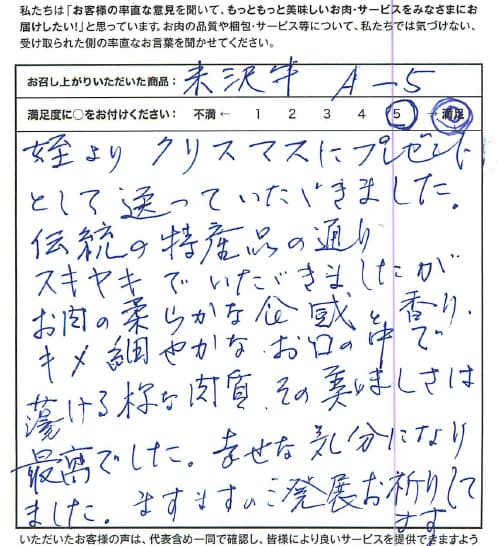 私たちは「お客様の率直な意見を聞いて、もっともっと美味しいお肉・サービスをみなさまにお
届けしたい!」と思っています。お肉の品質や梱包・サービス等について、私たちでは気づけない、
受け取られた側の率直なお言葉を聞かせてください。
お召し上がりいただいた商品： 米沢牛 A-5
満足度に○をお付けください： 不満 ← 1 2 3 4 5 → 満足
姪より クリスマスにプレゼント
として送っていただきました。
伝統の特産品の通り
スキヤキでいただきましたが
お肉の柔らかな食感と香り、
キメ細やかな お口の中で
蕩ける様な肉質、その美味しさは
最高でした。幸せな気分になり
ました。ますますのご発展お祈りして
ます
いただいたお客様の声は、代表含め一同で確認し、皆様により良いサービスを提供できますよう